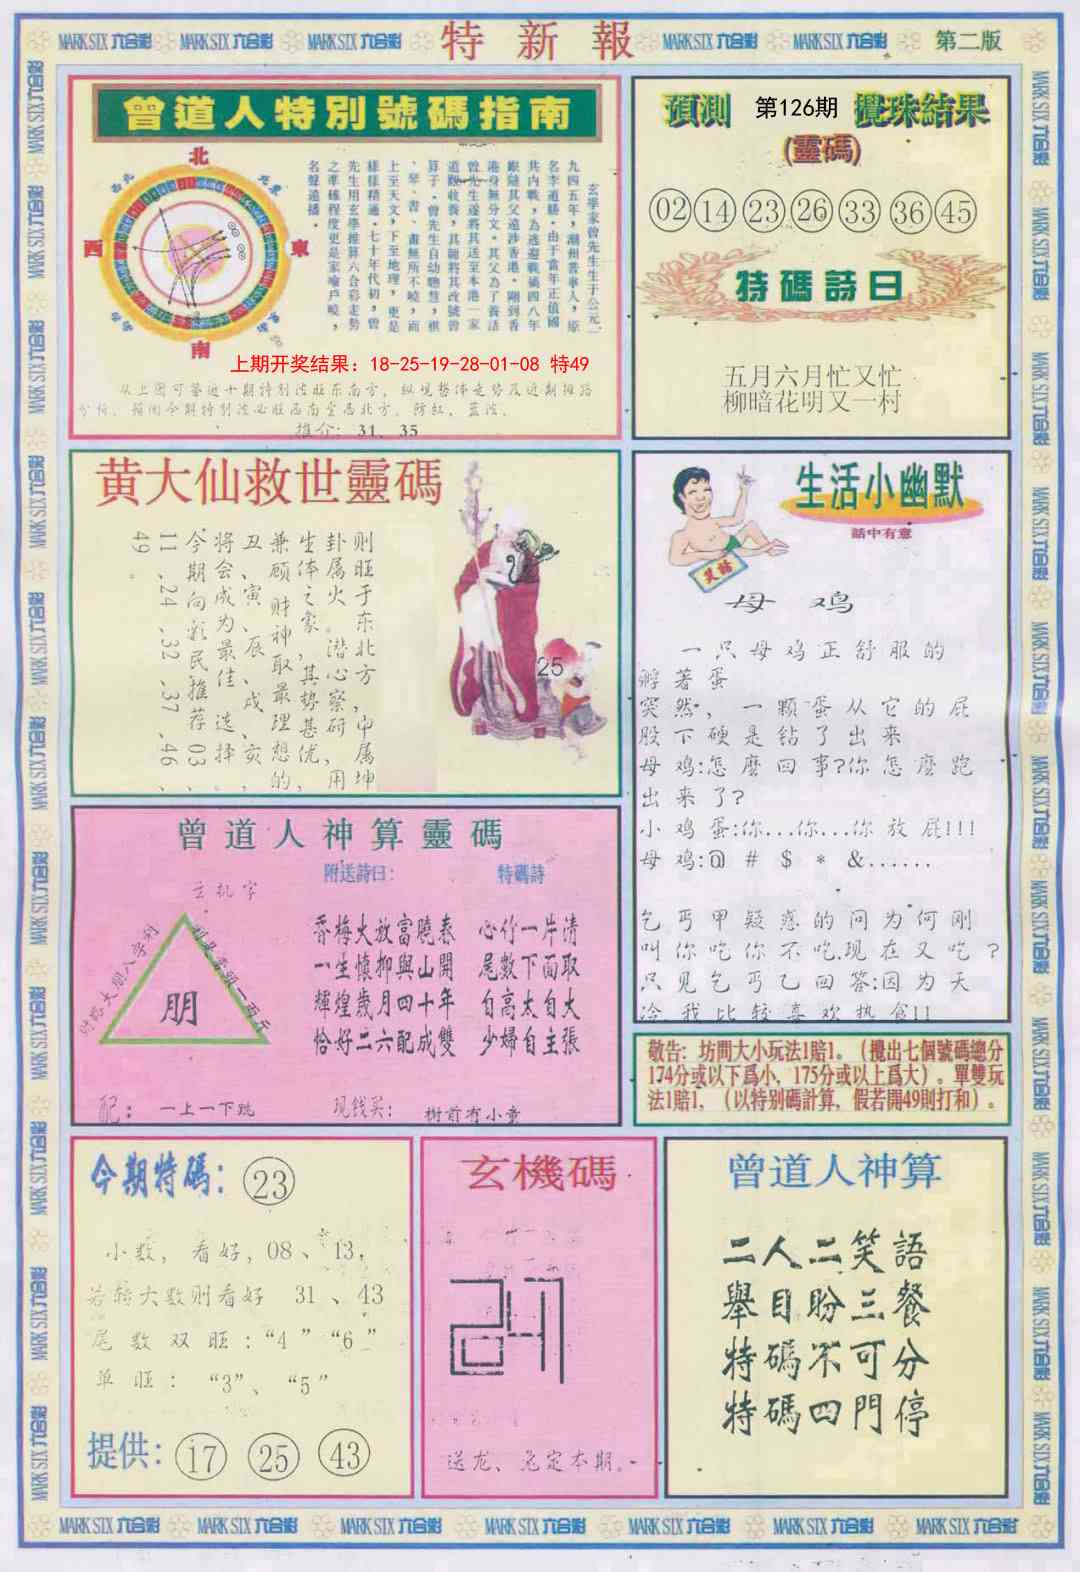 MARK SIX 六合彩 MARK SIX 六合彩 MARK SIX 六合彩 特新報 MARK SIX 六合彩 MARK SIX 六合彩 第二版
曾道人特別號碼指南
北
東北
西北
西
東
南
玄學家曾先生生于公元一
九四五年，潮州普寧人，原
名李道勝。由于當年正值國
共内戰，為逃避戰禍四八年
跟隨其父遠涉香港。剛到香
港身無分文。其父為了養活
曾先生遂將其送至本港一家
道觀收養，其師將其改號曾
算子。曾先生自幼聰慧，棋
、琴、書、畫無所不曉，而
上至天文，下至地理，更是
樣樣精通。七十年代初，曾
先生用玄學推算六合彩走勢
之準確程度更是家喻戶曉，
名聲遠播。
上期开奖结果：18-25-19-28-01-08 特49
从上图可鉴近十期特别波旺东南方。纵观整体走势及近期
推介：31、35
預測 第126期 攪珠結果
(靈碼)
02 14 23 26 33 36 45
特碼詩曰
五月六月忙又忙
柳暗花明又一村
黄大仙救世靈碼
则旺于东北方，中属坤
卦属火。潜心察研，用
生体之象，其势甚优，
兼顾财神取最理想的，
丑、寅、辰、戌、亥
将会成为最佳选择。
今期向彩民推荐03、
11、24、32、37、46、
49。
25
生活小幽默
話中有意
笑話
母鸡
一只母鸡正舒服的
孵著蛋
突然，一颗蛋从它的屁
股下硬是钻了出来
母鸡:怎麼回事?你怎麼跑
出来了?
小鸡蛋:你...你...你放屁!!!
母鸡:@ # $ * &......
乞丐甲疑惑的问为何刚
叫你吃你不吃,现在又吃?
只见乞丐乙回答:因为天
冷,我比较喜欢热食!!
曾道人神算靈碼
玄机字
附送詩曰：
特碼詩
朋
香梅大放富曉春
一生懷抑與山開
輝煌歲月四十年
恰好二六配成雙
心竹一片清
尾數下面取
自高太自大
少婦自主張
配：一上一下跳
现钱买：树前有小童
敬告：坊間大小玩法1賠1。（攪出七個號碼總分
174分或以下爲小，175分或以上爲大）。單雙玩
法1賠1，（以特别碼計算，假若開49則打和）。
今期特碼： 23
小数，看好，08、13，
若转大数则看好 31、43
尾数双旺：“4”“6”
单旺：“3”、“5”
提供： 17 25 43
玄機碼
送龙、兔定本期。
曾道人神算
二人二笑語
舉目盼三餐
特碼不可分
特碼四門停
MARK SIX 六合彩 MARK SIX 六合彩 MARK SIX 六合彩 MARK SIX 六合彩 MARK SIX 六合彩 MARK SIX 六合彩 MARK SIX 六合彩